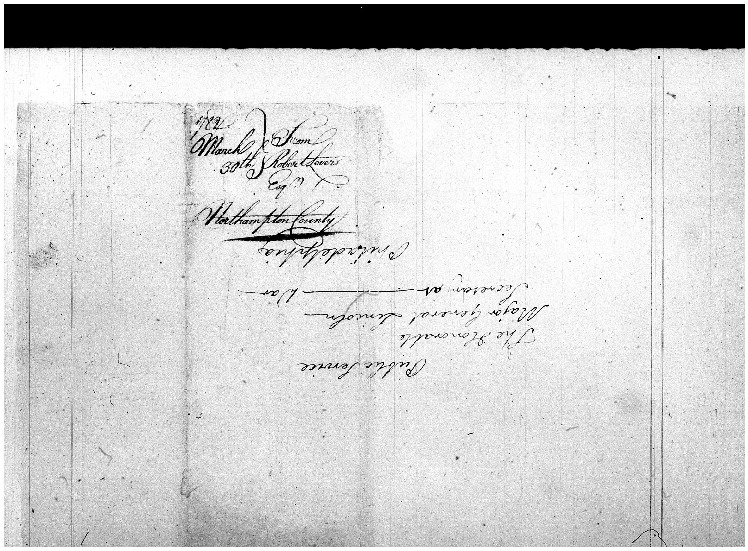 March
30th
From
Robert Levers
Esq
Northampton County
Public Service
The Honorable
Major General Lincoln
Secretary at War
Philadelphia